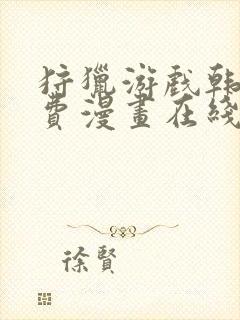 狩獵游戲韩
費漫畫在綫
徐賢